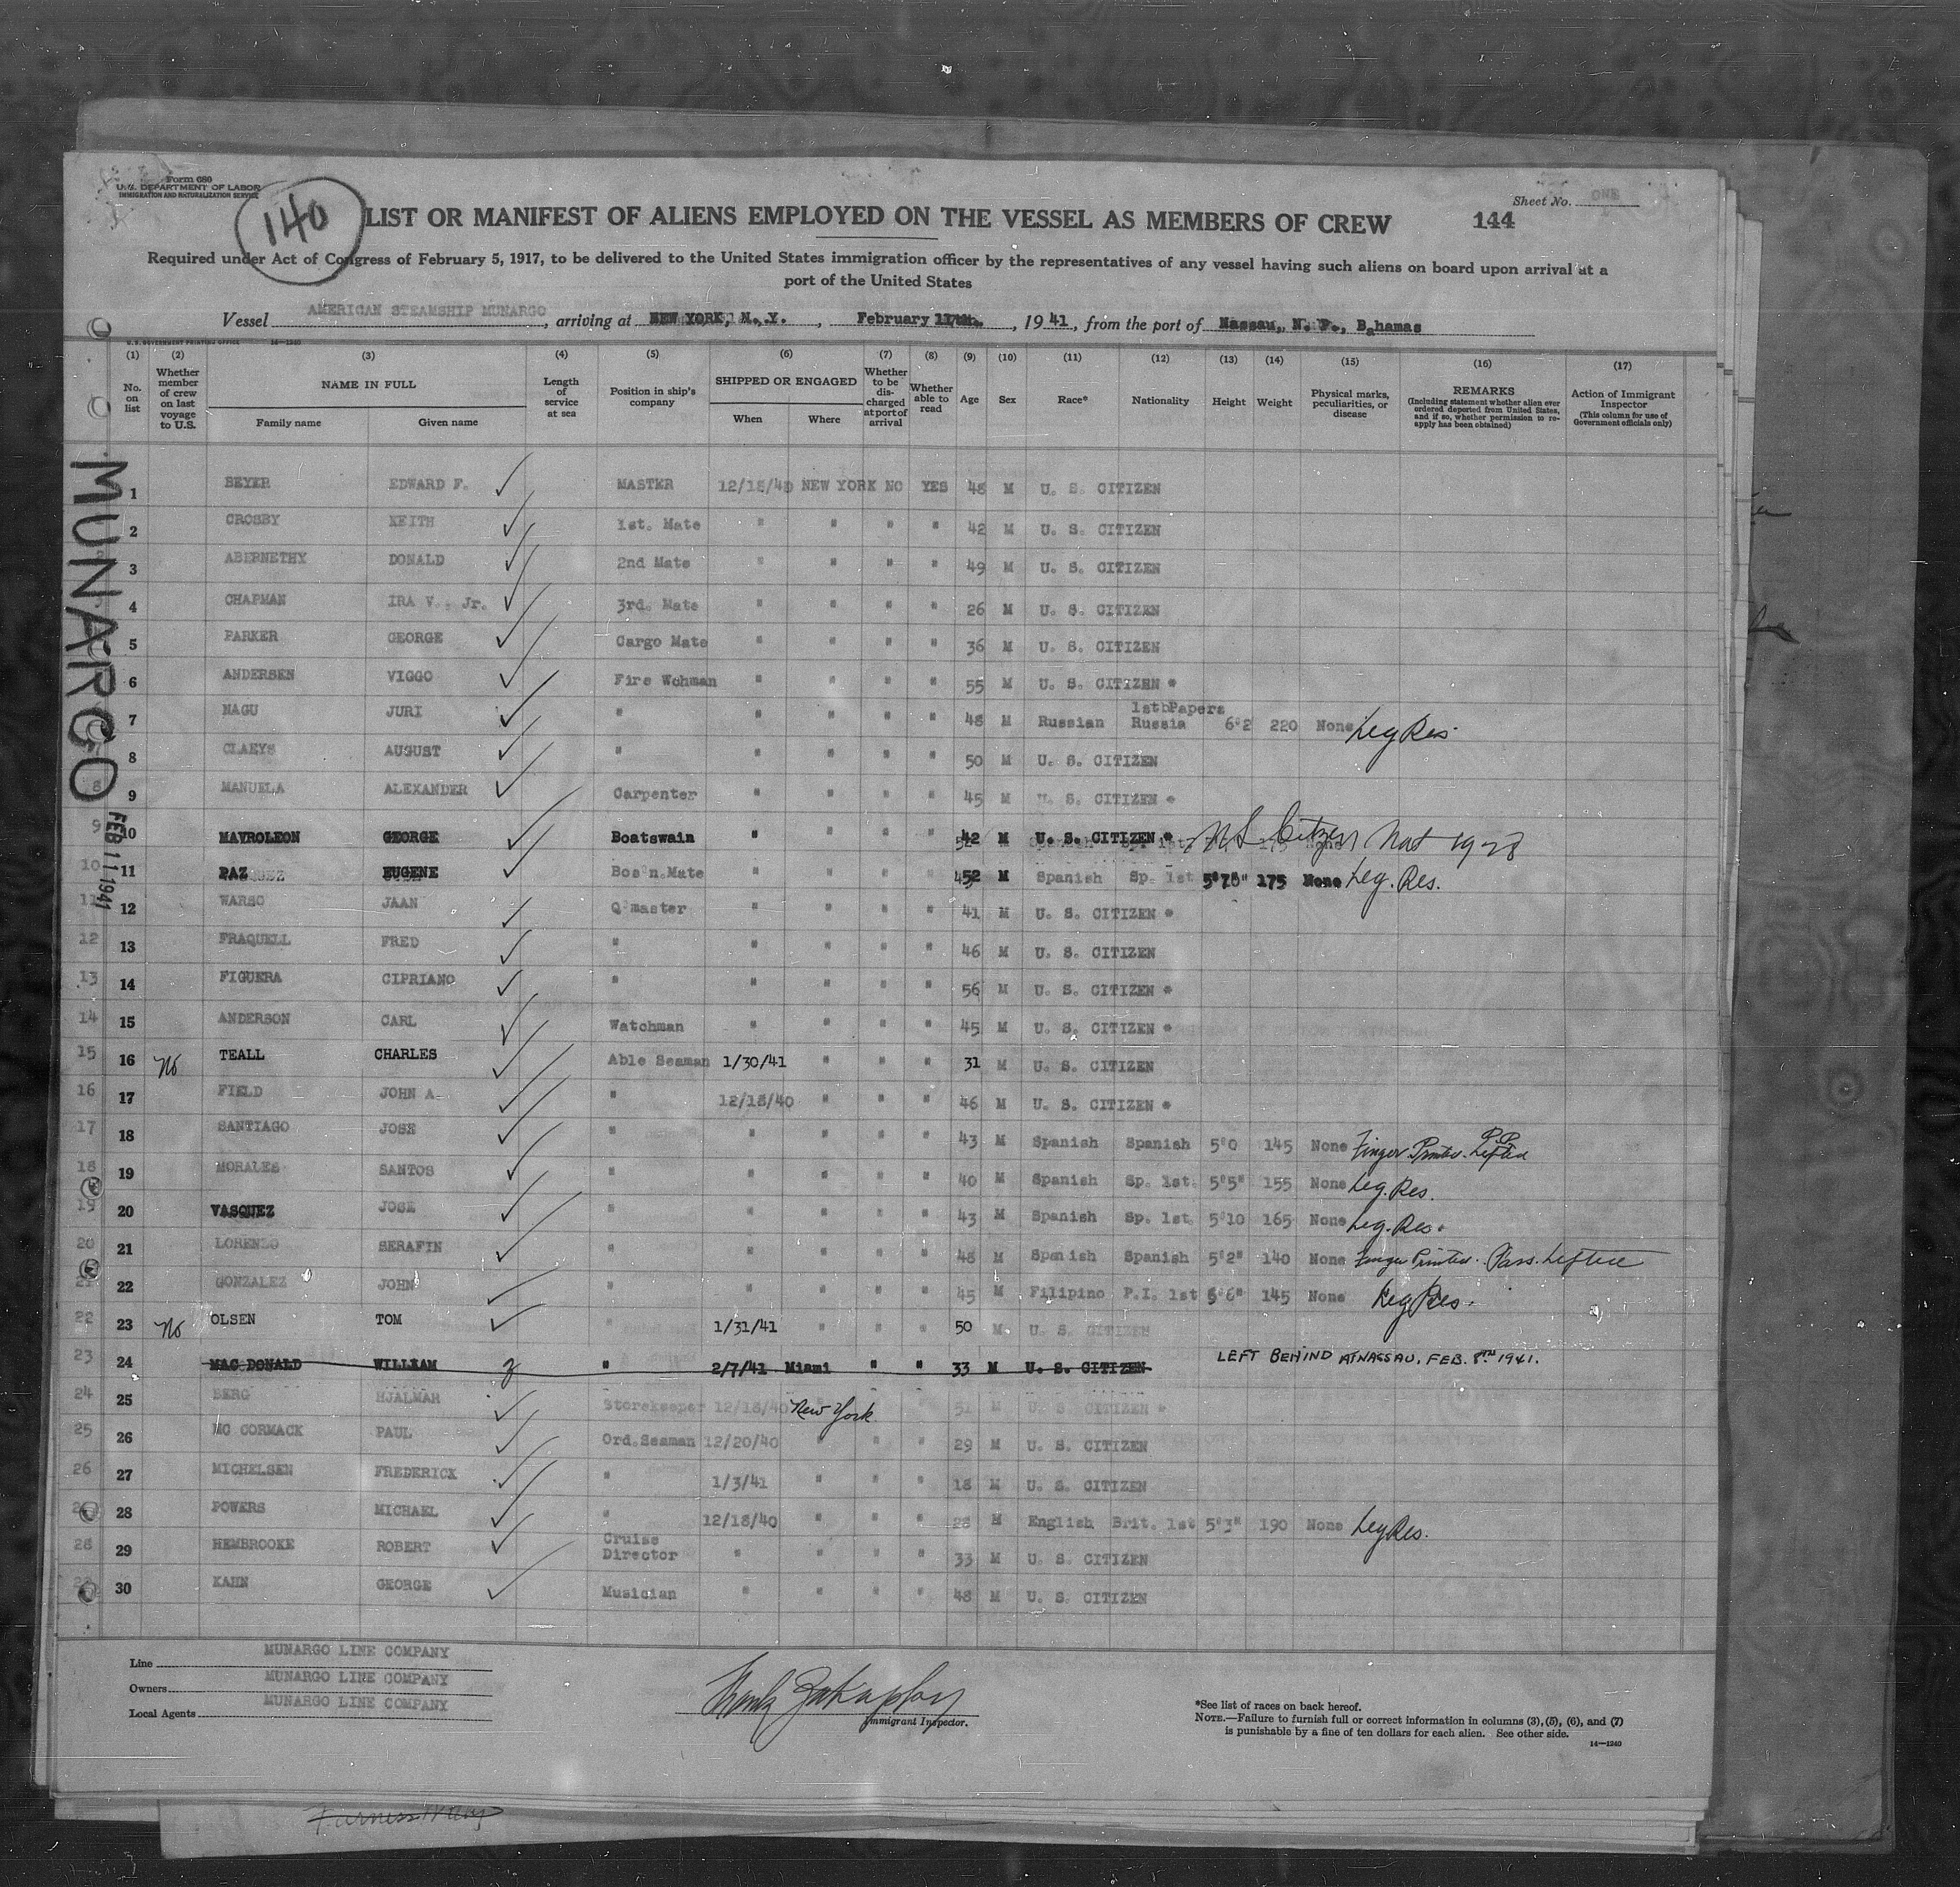 Form 680
U.S. DEPARTMENT OF LABOR
IMMIGRATION AND NATURALIZATION SERVICE
140
Sheet No. ONE
LIST OR MANIFEST OF ALIENS EMPLOYED ON THE VESSEL AS MEMBERS OF CREW 144
Required under Act of Congress of February 5, 1917, to be delivered to the United States immigration officer by the representatives of any vessel having such aliens on board upon arrival at a
port of the United States
Vessel AMERICAN STEAMSHIP MUNARGO, arriving at NEW YORK, N.Y., February 11th., 1941, from the port of Nassau, N. P., Bahamas
U. S. GOVERNMENT PRINTING OFFICE 14—1240
(1) (2) (3) (4) (5) (6) (7) (8) (9) (10) (11) (12) (13) (14) (15) (16) (17)
No. on list
Whether member of crew on last voyage to U.S.
NAME IN FULL
Family name Given name
Length of service at sea
Position in ship's company
SHIPPED OR ENGAGED
When Where
Whether to be discharged at port of arrival
Whether able to read
Age Sex Race* Nationality Height Weight
Physical marks, peculiarities, or disease
REMARKS
(Including statement whether alien ever ordered deported from United States, and if so, whether permission to reapply has been obtained)
Action of Immigrant Inspector
(This column for use of Government officials only)
MUNARGO
FEB 11 1941
1 BEYER EDWARD F. MASTER 12/18/40 NEW YORK NO YES 48 M U. S. CITIZEN
2 CROSBY KEITH 1st. Mate " " " " 42 M U. S. CITIZEN
3 ABERNETHY DONALD 2nd Mate " " " " 49 M U. S. CITIZEN
4 CHAPMAN IRA V., Jr. 3rd. Mate " " " " 26 M U. S. CITIZEN
5 PARKER GEORGE Cargo Mate " " " " 36 M U. S. CITIZEN
6 ANDERSEN VIGGO Fire Wohman " " " " 55 M U. S. CITIZEN *
7 MAGU JURI " " " " " 48 M Russian 1stbPapers Russia 6'2 220 None Leg Res.
8 CLAEYS AUGUST " " " " " 50 M U. S. CITIZEN
9 MANUELA ALEXANDER Carpenter " " " " 45 M U. S. CITIZEN *
9 10 MAVROLEON GEORGE Boatswain " " " " 42 M U. S. CITIZEN * U S Citizen Nat 1928
10 11 PAZ EUGENE Bos'n.Mate " " " " 52 M Spanish Sp. 1st 5'7" 175 None Leg. Res.
11 12 WARSO JAAN Q-master " " " " 41 M U. S. CITIZEN *
12 13 FRAQUELL FRED " " " " " 46 M U. S. CITIZEN
13 14 FIGUERA CIPRIANO " " " " " 56 M U. S. CITIZEN *
14 15 ANDERSON CARL Watchman " " " " 45 M U. S. CITIZEN *
15 16 No TEALL CHARLES Able Seaman 1/30/41 " " " 31 M U. S. CITIZEN
16 17 FIELD JOHN A. " 12/18/40 " " " 46 M U. S. CITIZEN *
17 18 SANTIAGO JOSE " " " " " 43 M Spanish Spanish 5'0 145 None Finger Printed. P.P. Lifted
18 19 MORALES SANTOS " " " " " 40 M Spanish Sp. 1st. 5'5" 155 None Leg. Res.
19 20 VASQUEZ JOSE " " " " " 43 M Spanish Sp. 1st. 5'10 165 None Leg. Res.
20 21 LORENZO SERAFIN " " " " " 48 M Spanish Spanish 5'2" 140 None Finger Printed. Pass. Lifted
21 22 GONZALEZ JOHN " " " " " 45 M Filipino P.I. 1st 5'6" 145 None Leg Res.
22 23 No OLSEN TOM " 1/31/41 " " " 50 M U. S. CITIZEN
23 24 MAC DONALD WILLIAM " 2/7/41 Miami " " 33 M U. S. CITIZEN LEFT BEHIND AT NASSAU, FEB. 8TH 1941.
24 25 BERG HJALMAR Storekeeper 12/18/40 New York " 51 M U. S. CITIZEN *
25 26 MC CORMACK PAUL Ord.Seaman 12/20/40 " " " 29 M U. S. CITIZEN
26 27 MICHELSEN FREDERICK " 1/3/41 " " " 18 M U. S. CITIZEN
28 POWERS MICHAEL " 12/18/40 " " " 28 M English Brit. 1st 5'3" 190 None Leg Res.
28 29 HEMBROOKE ROBERT Cruise Director " " " " 33 M U. S. CITIZEN
30 KAHN GEORGE Musician " " " " 48 M U. S. CITIZEN
Line MUNARGO LINE COMPANY
Owners MUNARGO LINE COMPANY
Local Agents MUNARGO LINE COMPANY
Immigrant Inspector.
*See list of races on back hereof.
NOTE.—Failure to furnish full or correct information in columns (3), (5), (6), and (7)
is punishable by a fine of ten dollars for each alien. See other side.
14—1240